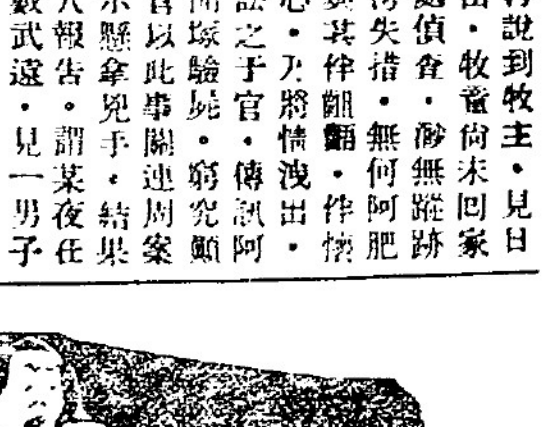 說到牧主・見日
・牧童尚未回家
偵查・渺無蹤跡
失措・無何阿肥
其伴齟齬・伴懷
心・乃將情洩出・
訟之于官・傳訊阿
塚驗屍。窮究顛
以此事關連周案
懸拿兇手・結果
報告。謂某夜在
數武遠・見一男子